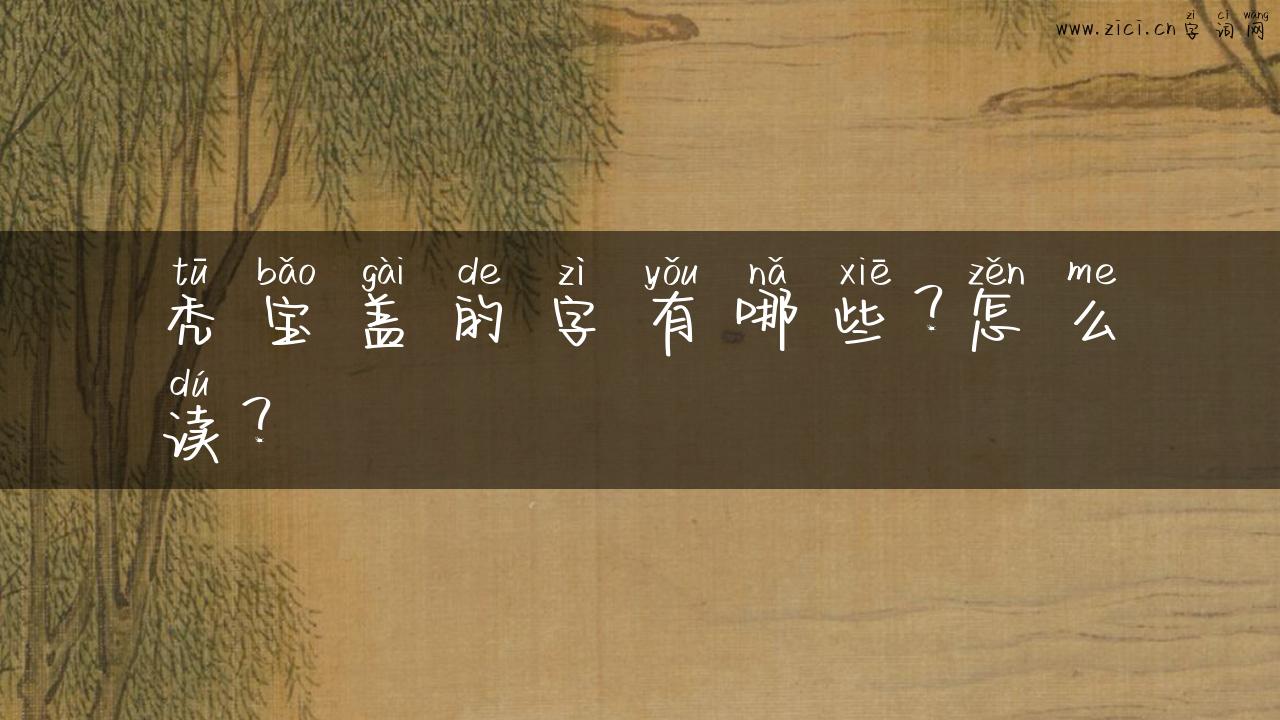 zì cí wǎng
www.zici.cn字词网
tū bǎo gài de zì yǒu nǎ xiē zěn me
秃宝盖的字有哪些?怎么
dú
读?